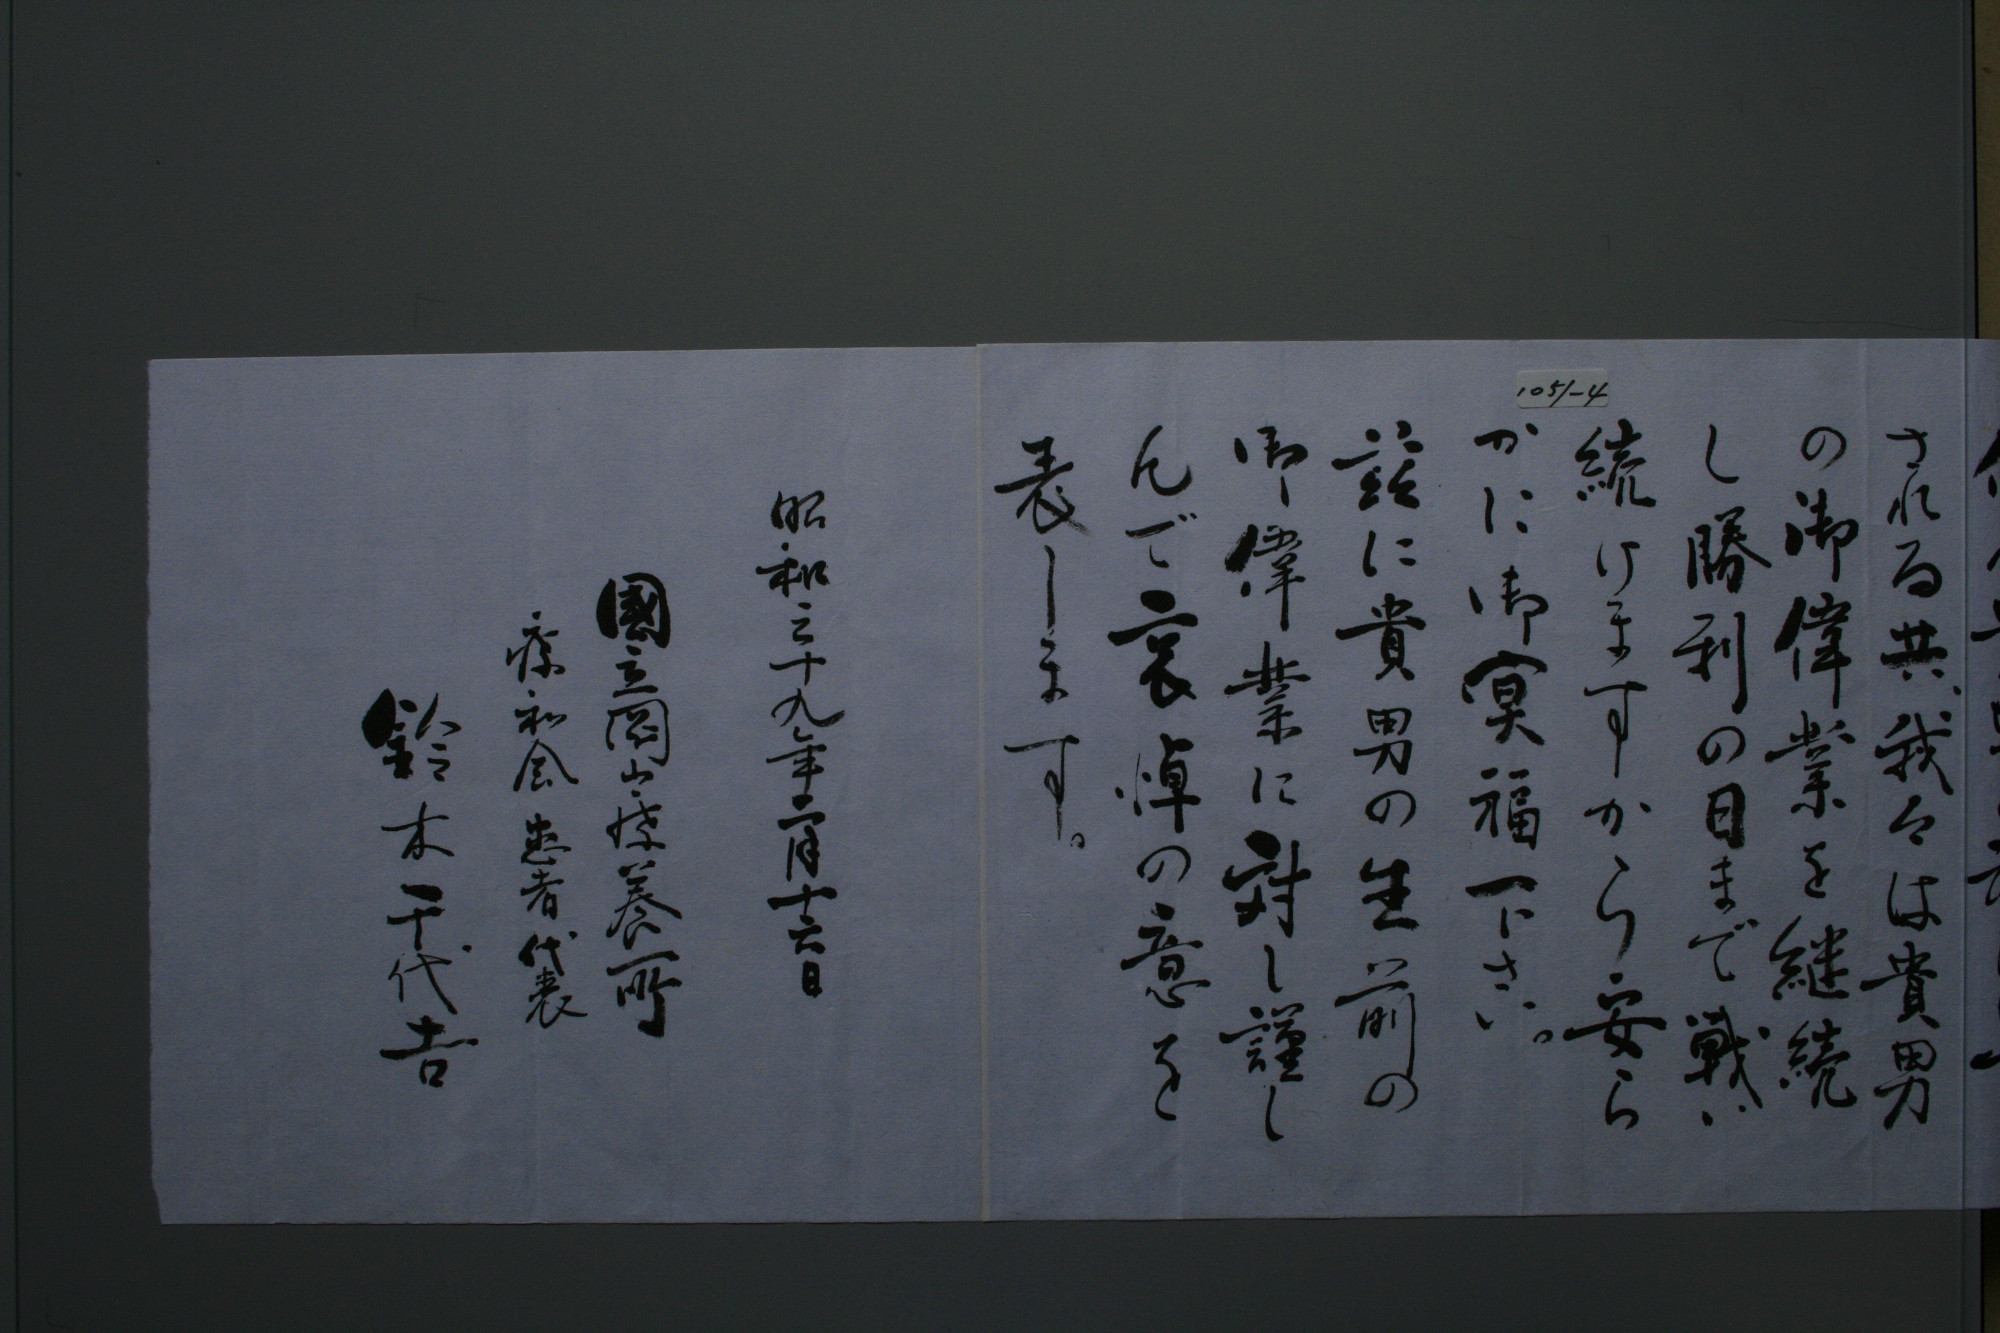 される共、我々は貴男
の御偉業を継続
し勝利の日まで戦い
続けますから安ら
かに御冥福下さい。
茲に貴男の生前の
御偉業に対し謹し
んで哀悼の意を
表します。
昭和三十九年二月十六日
國立岡山療養所
療和会患者代表
鈴木千代吉
1051-4